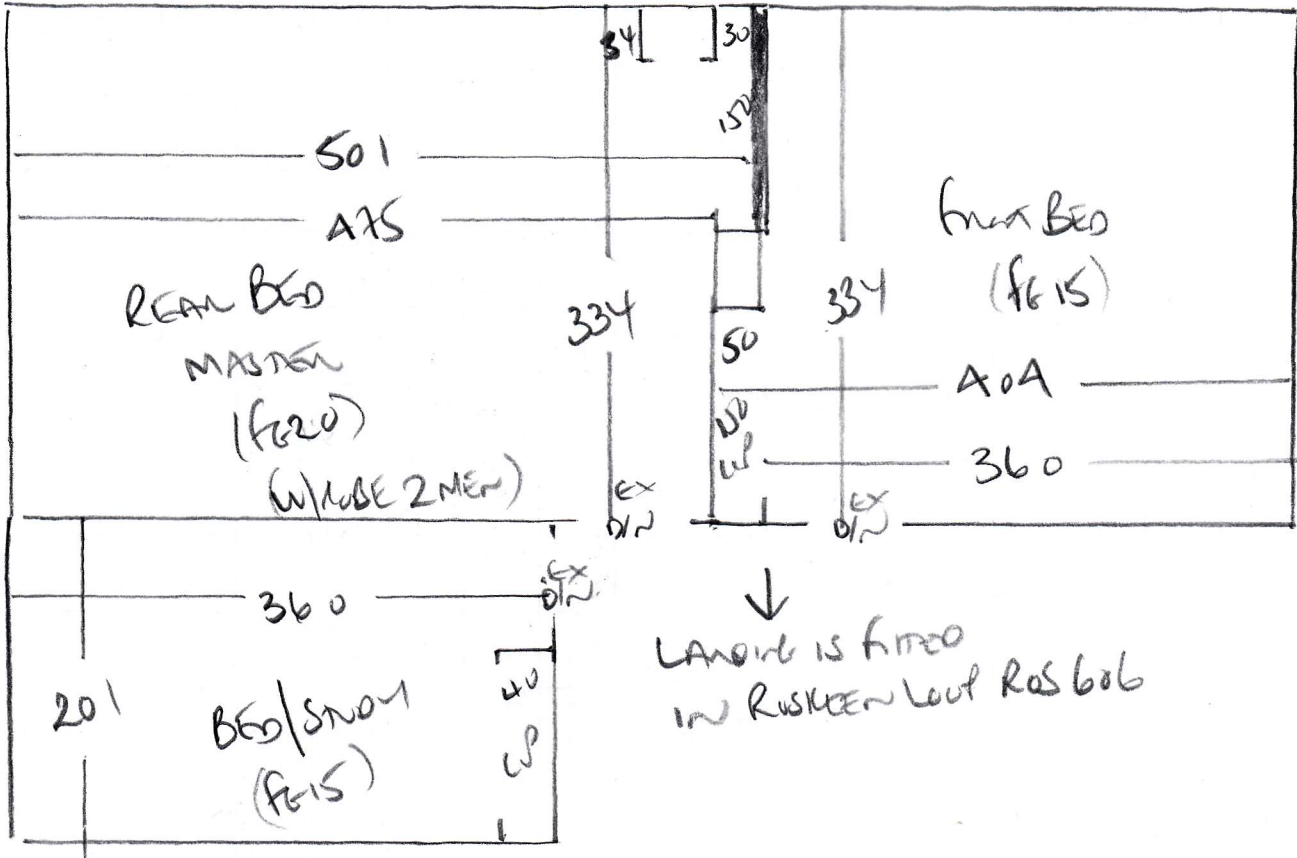 34
30
150
501
475
334
334
REAR BED
MASTER
(FG20)
(W/ROBE 2 MEN)
50
FRONT BED
(FG15)
404
360
EX
D/N
EX
D/N
EX
D/N
360
201
40
BED/STUDY
(FG15)
LANDING IS FITTED
IN ROSKEEN LOUP ROS 606